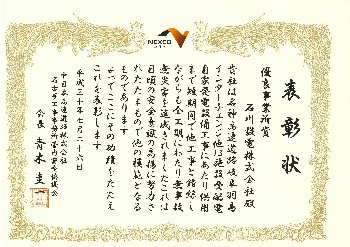 NEXCO
表彰状
優良事業所賞
石川設電株式会社殿
貴社は名神高速道路岐阜羽島
インターチェンジ他13施設受配電
自家発電設備工事にあたり供用
まで短期間で他工事と錯綜し
ながらも全工期にわたり無事故
無災害を達成されましたこれは
日頃の安全意識の高揚に努力さ
れたたまもので他の模範となる
ものであります
よってここにその功績をたたえ
これを表彰します
平成三十年七月二十六日
中日本高速道路株式会社
名古屋工事事務所管内安全協議会
会長 青木 圭